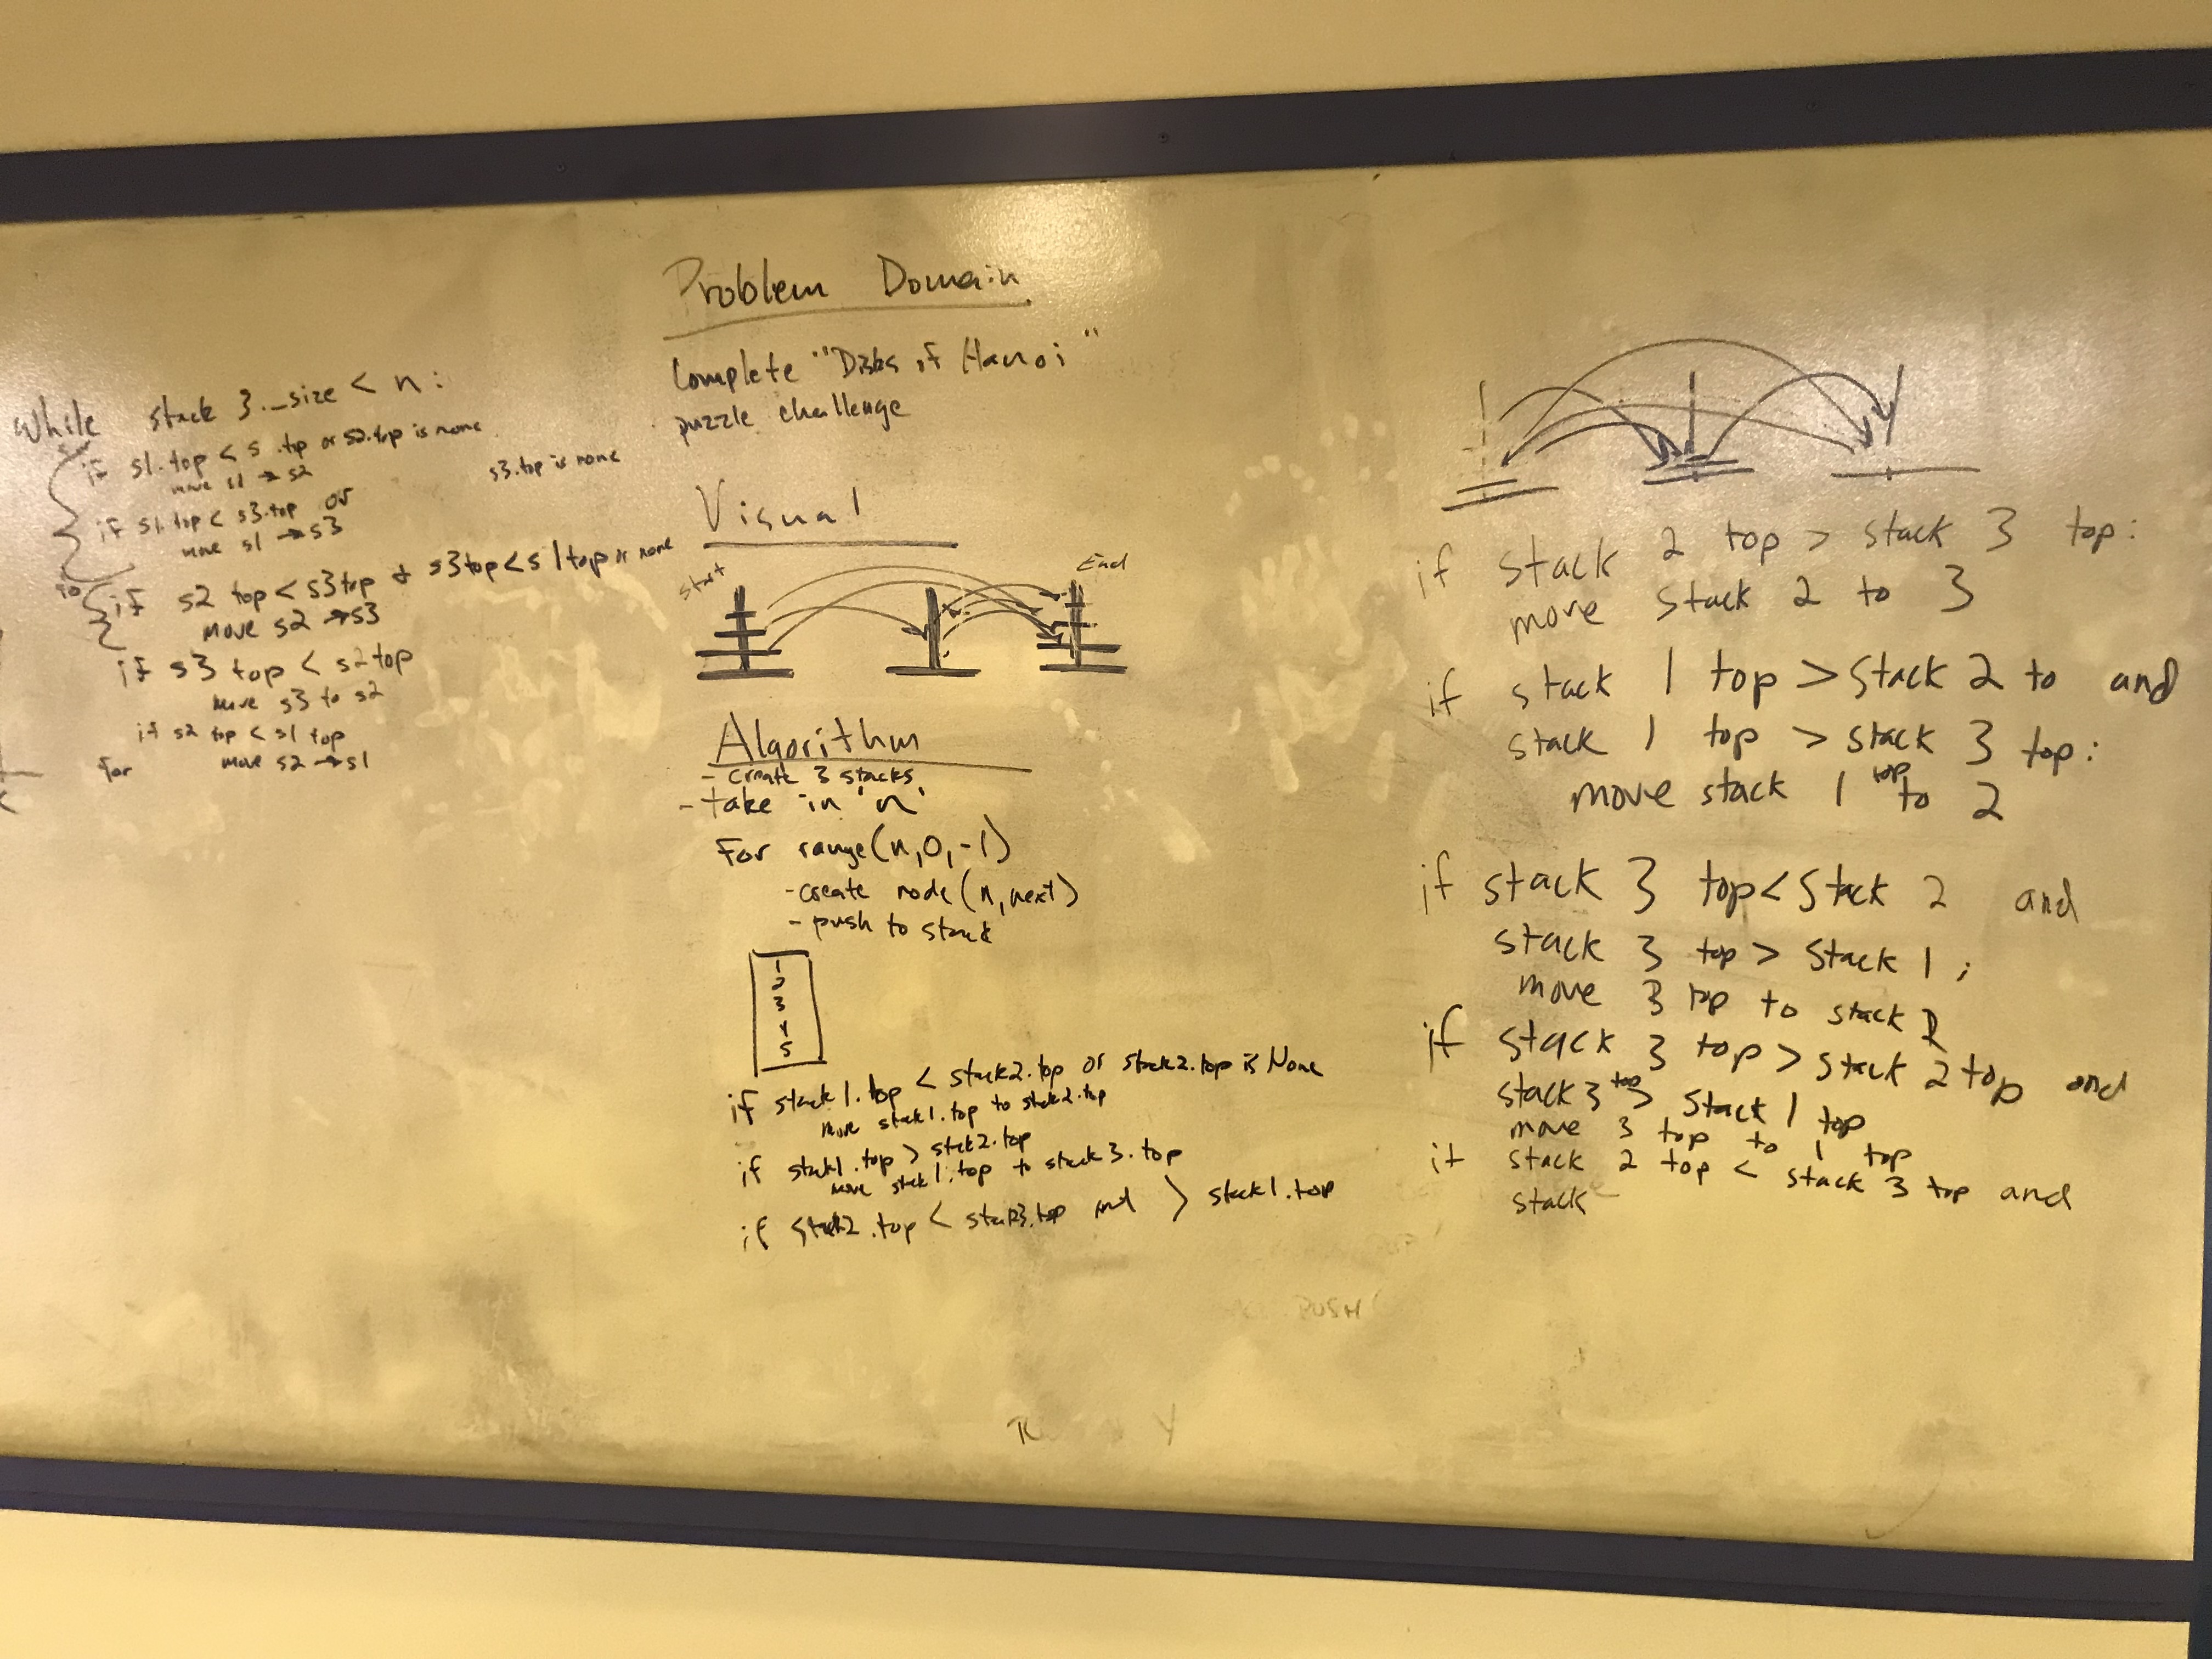 While stack 3._size < n:
if s1.top < s .top or s2.top is none
move s1 → s2
s3.top is none
if s1.top < s3.top or
move s1 → s3
if s2 top < s3top + s3top < s1top or none
move s2 → s3
if s3 top < s2top
move s3 to s2
if s2 top < s1 top
for move s2 → s1
Problem Domain
Complete "Disks of Hanoi"
puzzle challenge
Visual
Start
End
Algorithm
- create 3 stacks
- take in 'n'
For range(n,0,-1)
- create node(n,next)
- push to stack
1
2
3
4
5
if stack1.top < stack2.top or stack2.top is None
move stack1.top to stack2.top
if stack1.top > stack2.top
move stack1.top to stack3.top
if stack2.top < stack3.top and > stack1.top
if stack 2 top > stack 3 top:
move stack 2 to 3
if stack 1 top > stack 2 to and
stack 1 top > stack 3 top:
move stack 1 top to 2
if stack 3 top < stack 2 and
stack 3 top > stack 1;
move 3 top to stack 2
if stack 3 top > stack 2 top and
stack 3 top > stack 1 top
move 3 top to 1 top
if stack 2 top < stack 3 top and
stack
PUSH